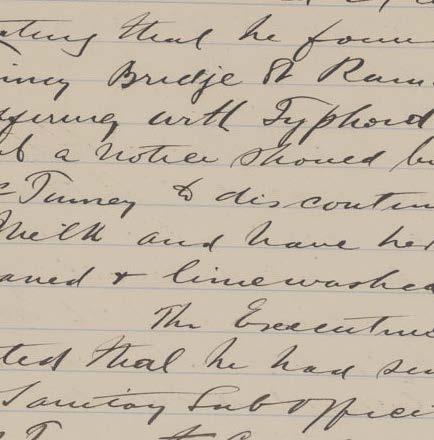 ating that he foun
iney Bridge St Ram
ffering with Typhoid
that a notice should be
c Tinney to discontin
Milk and have her
aned & limewashed
The Executive
ted that he had se
Sanitary Sub Offici